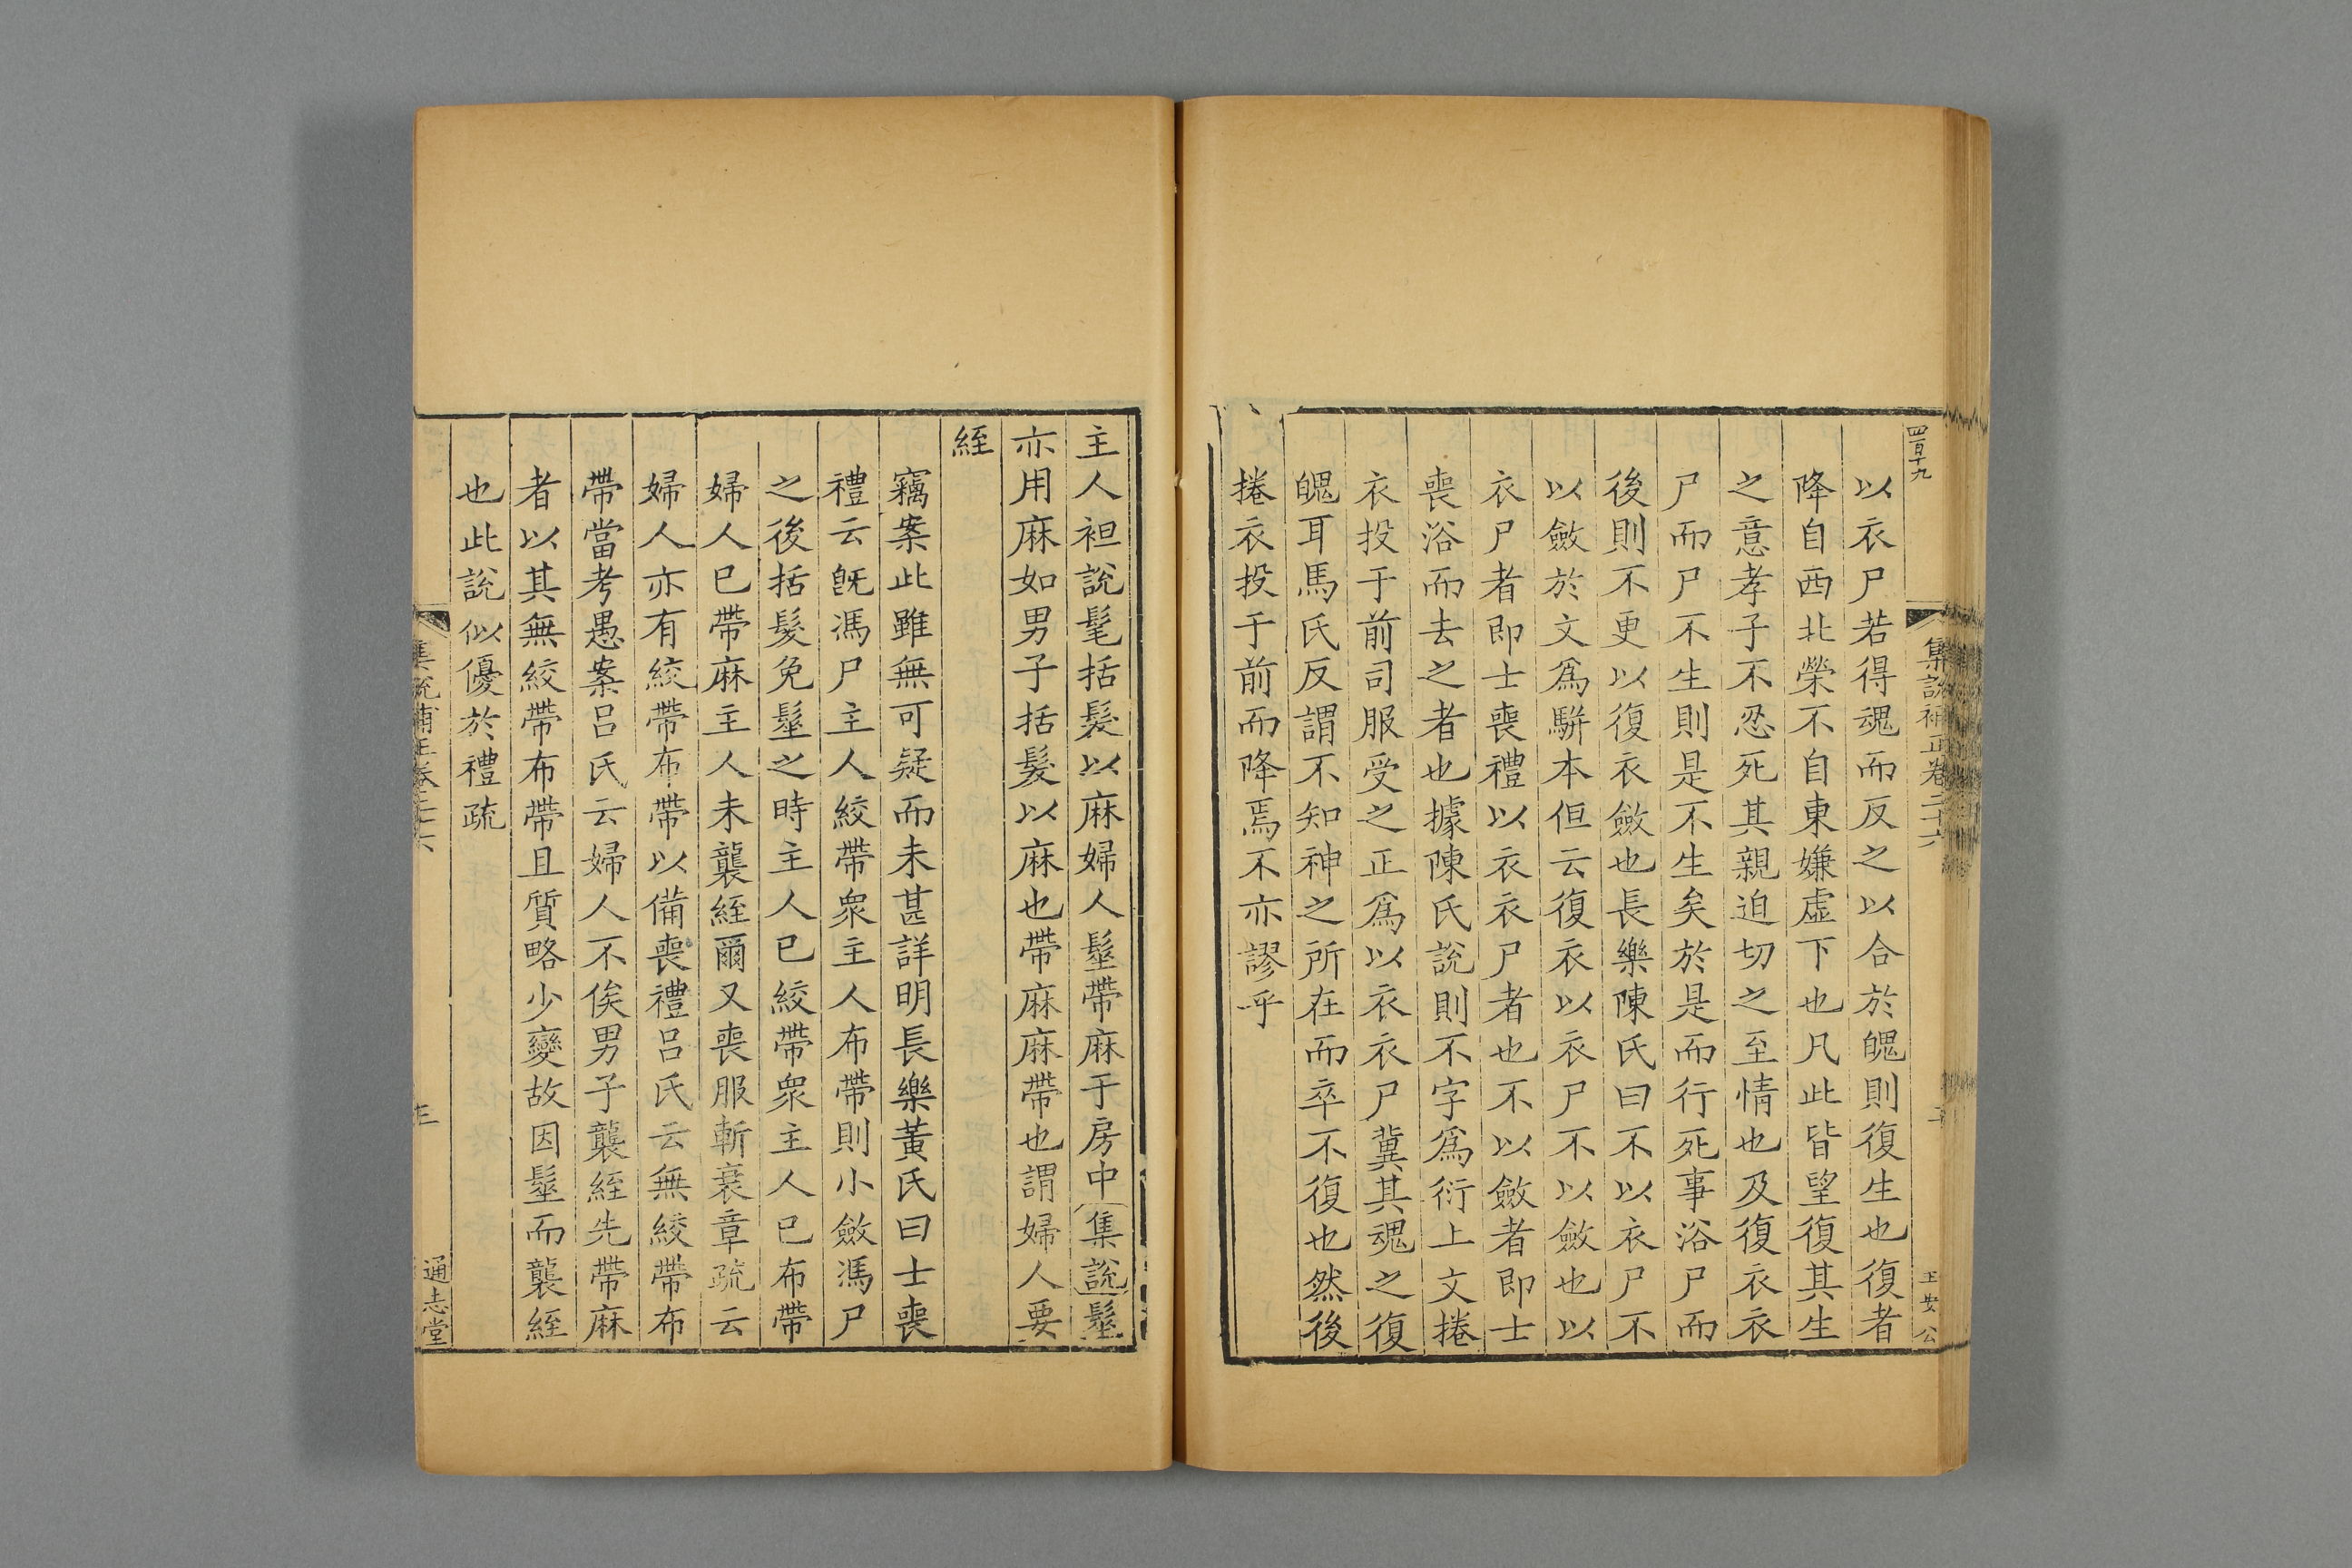 四百十九
集說補正卷二十六
王安公
以衣尸若得魂而反之以合於魄則復生也復者
降自西北榮不自東嫌虛下也凡此皆望復其生
之意孝子不忍死其親迫切之至情也及復衣衣
尸而尸不生則是不生矣於是而行死事浴尸而
後則不更以復衣斂也長樂陳氏曰不以衣尸不
以斂於文爲駢本但云復衣以衣尸不以斂也以
衣尸者即士喪禮以衣衣尸者也不以斂者即士
喪浴而去之者也據陳氏說則不字爲衍上文捲
衣投于前司服受之正爲以衣衣尸冀其魂之復
魄耳馬氏反謂不知神之所在而卒不復也然後
捲衣投于前而降焉不亦謬乎
主人袒說髦括髮以麻婦人髽帶麻于房中集說髽
亦用麻如男子括髮以麻也帶麻麻帶也謂婦人要
絰
竊案此雖無可疑而未甚詳明長樂黃氏曰士喪
禮云旣馮尸主人絞帶衆主人布帶則小斂馮尸
之後括髮免髽之時主人已絞帶衆主人已布帶
婦人已帶麻主人未襲絰爾又喪服斬衰章疏云
婦人亦有絞帶布帶以備喪禮呂氏云無絞帶布
帶當考愚案呂氏云婦人不俟男子襲絰先帶麻
者以其無絞帶布帶且質略少變故因髽而襲絰
也此說似優於禮疏
集說補正卷二十六
三
通志堂